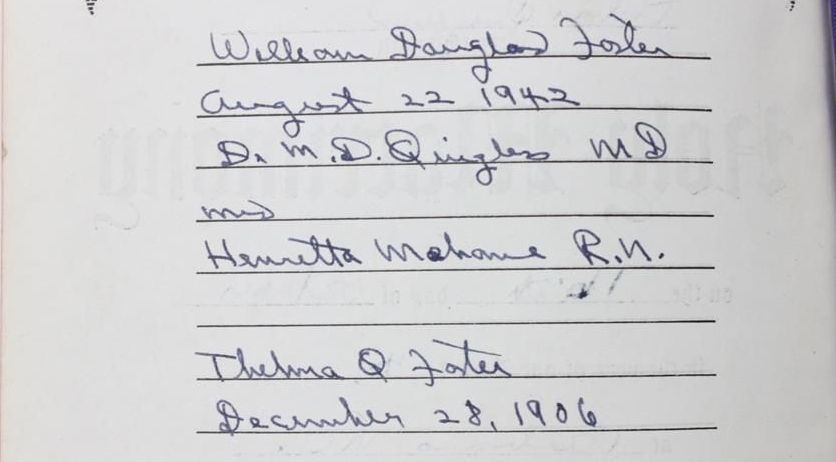 William Douglas Foster
August 22 1942
D. M. D. Quigless MD
Mrs
Henrietta Mahone R.N.
Thelma Q Foster
December 28, 1906